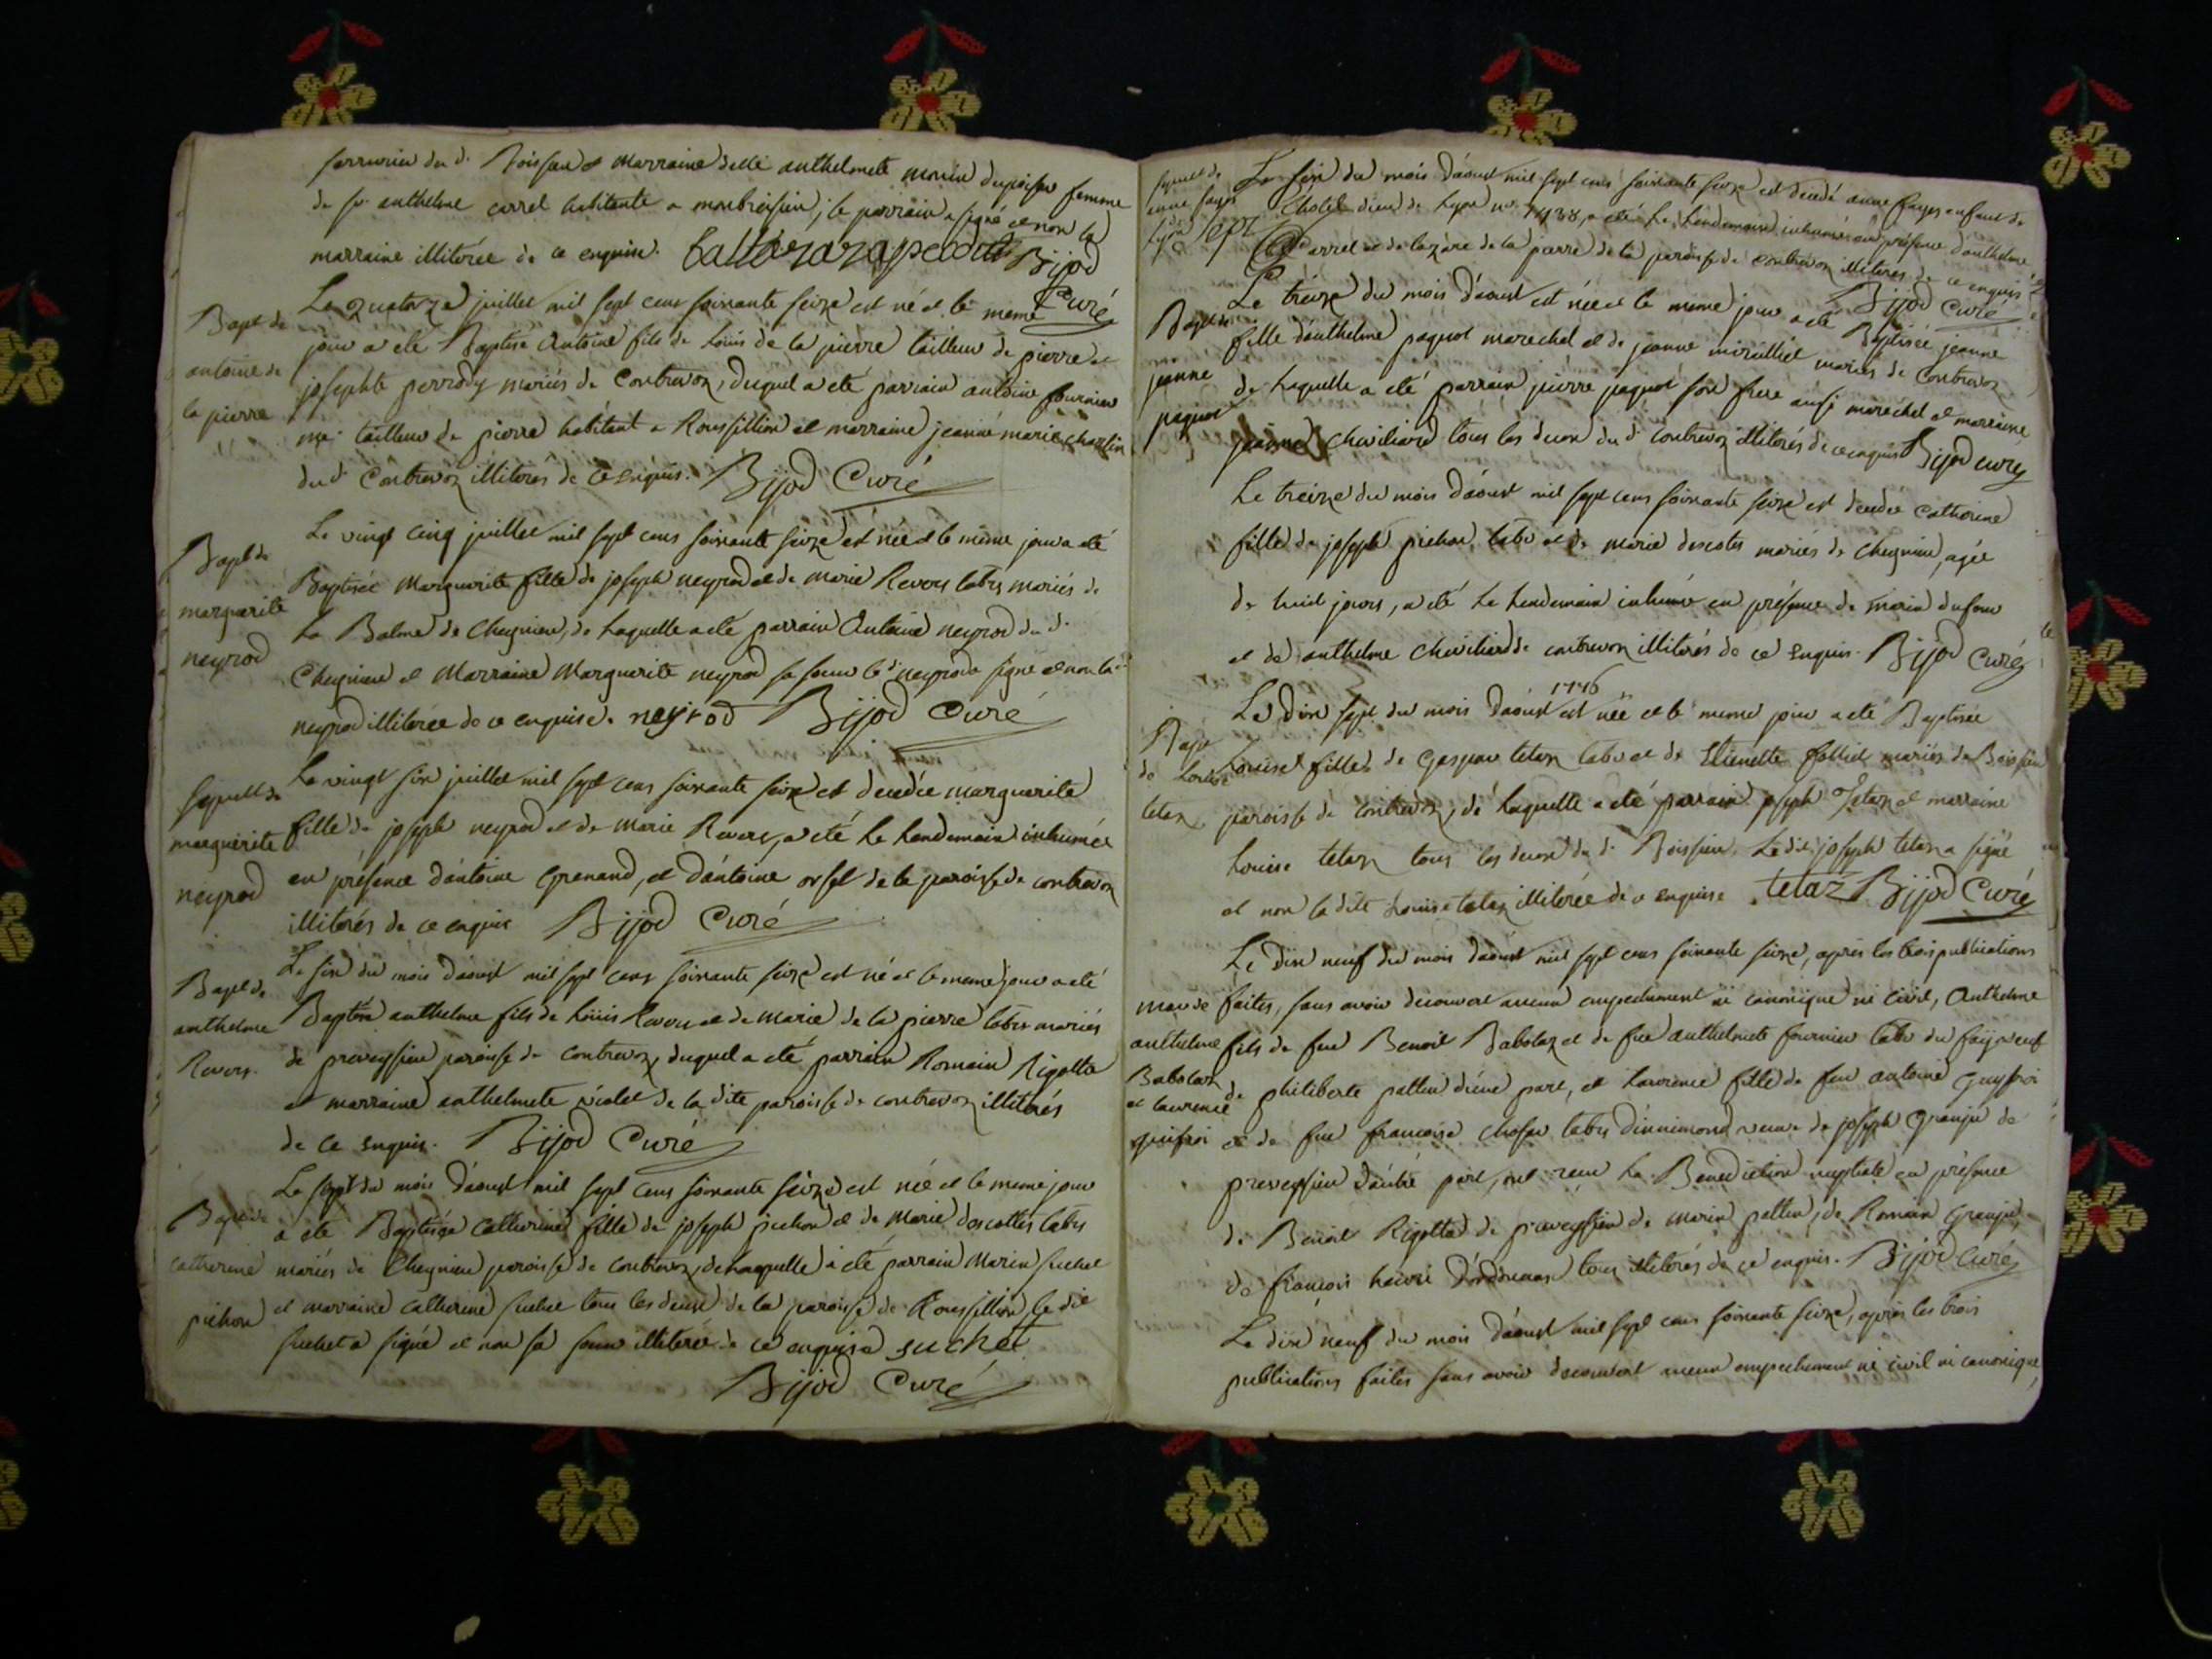 serrurier du d. Boissieu et marraine delle anthelmete morin dupoisu femme
de sr anthelme carrel habitante a monbreisieu; le parrain a signé et non la
marraine illiterée de ce enquise. Baltazar Bijod
Curé
Bapt de
antoine de
la pierre
Le quatorze juillet mil sept cens soixante seize est né et le meme
jour a eté Baptisé Antoine fils de Louis de la pierre tailleur de pierre et
josephte perrody mariés de Contrevoz, duquel a eté parrain antoine fournier
me tailleur de pierre habitant a Roussillion et marraine jeanne marie charlin
du d. Contrevoz illiterés de ce enquis. Bijod Curé
Bapt de
marguerite
neyrod
Le vingt cinq juillet mil sept cens soixante seize est née et le même jour a eté
Baptisée Marguerite fille de joseph neyrod et de Marie Revers labrs mariés de
La Balme de Cheignieu, de Laquelle a eté parrain Antoine neyrod du d.
Cheignieu et Marraine Marguerite neyrod sa soeur le d. neyrod a signé et non la d.
neyrod illiterée de ce enquise. neyrod Bijod Curé
Sepult de
marguerite
neyrod
Le vingt six juillet mil sept cens soixante seize est decedée marguerite
fille de joseph neyrod et de Marie Revers, a eté Le Lendemain inhumée
en présence d'antoine Grenand, et d'antoine orsel de la paroisse de contrevoz
illiterés de ce enquis Bijod Curé
Bapt de
anthelme
Revers.
Le six du mois d'aoust mil sept cens soixante seize est né et le meme jour a eté
Baptisé anthelme fils de Louis Revers et de Marie de la pierre labrs mariés
de preveyssieu paroisse de contrevoz, duquel a eté parrain Romain Rigottaz
et marraine anthelmete violet de la dite paroisse de contrevoz illiterés
de ce enquis. Bijod Curé
Bapt de
catherine
pichon
Le sept du mois d'aoust mil sept cens soixante seize est née et le meme jour
a ete Baptisée Catherine fille de joseph pichon et de Marie descottes labrs
mariés de Cheignieu paroisse de contrevoz, de Laquelle a eté parrain Marin suchet
et marraine Catherine suchet tous les deux de la paroisse de Roussillion, le dit
suchet a signé et non sa soeur illiterée de ce enquise suchet
Bijod Curé
sepult de
anne fayes
Lyon sept
Le six du mois d'aoust mil sept cens soixante seize est decedé anne fayes enfant de
L'hotel dieu de Lyon no 7438, a eté Le Lendemain inhumé en présence d'anthelme
Carrel et de lazare de la pierre de la paroisse de contrevoz illiterés de ce enquis
Bijod Curé
Bapt de
jeanne
paquot
Le treize du mois d'aoust est née et le meme jour a eté Baptisée jeanne
fille d'anthelme paquot marechal et de jeanne miraillet mariés de Contrevoz
de Laquelle a eté parrain pierre paquot son frere aussi marechal et marraine
jeanne Cheviliard tous les deux du d. contrevoz illiterés de ce enquis Bijod curé
Le treize du mois d'aoust mil sept cens soixante seize est decedée Catherine
fille de joseph pichon labr et de marie descotes mariés de Cheignieu, agée
de huit jours, a eté Le Lendemain inhumée en présence de marin dufour
et de anthelme Cheviliard de contrevoz illiterés de ce enquis. Bijod Curé
Bapt
de Louise
tetaz
1776
Le dix sept du mois d'aoust est née et le meme jour a eté Baptisée
Louise fille de Gaspar tetaz labr et de Etienette folliet mariés de Boissieu
paroisse de contrevoz, de Laquelle a eté parrain joseph Tetaz et marraine
Louise tetaz tous les deux du d. Boissieu. Le dit joseph tetaz a signé
et non la dite Louise tetaz illiterée de ce enquise. tetaz Bijod Curé
mar de
anthelme
Babolaz
et laurence
guifroi
Le dix neuf du mois d'aoust mil sept cens soixante seize, après les trois publications
faites, sans avoir decouvert aucun empechement ni canonique ni civil, Anthelme
fils de feu Benoit Babolaz et de fue anthelmete fournier labr du fay veuf
de philiberte pattin d'une part, et Laurence fille de feu antoine Guyfroi
et de fue francoise chosu labrs d'innimond veuve de joseph Granju de
preveyssieu d'autre part, ont recu La Benediction nuptiale en présence
de Benoit Rigottaz de preveyssieu de marin pattin, de Romain Granju,
de francois heuri d'ordonnas tous illiterés de ce enquis. Bijod Curé
Le dix neuf du mois d'aoust mil sept cens soixante seize, après les trois
publications faites sans avoir decouvert aucun empechement ni civil ni canonique,